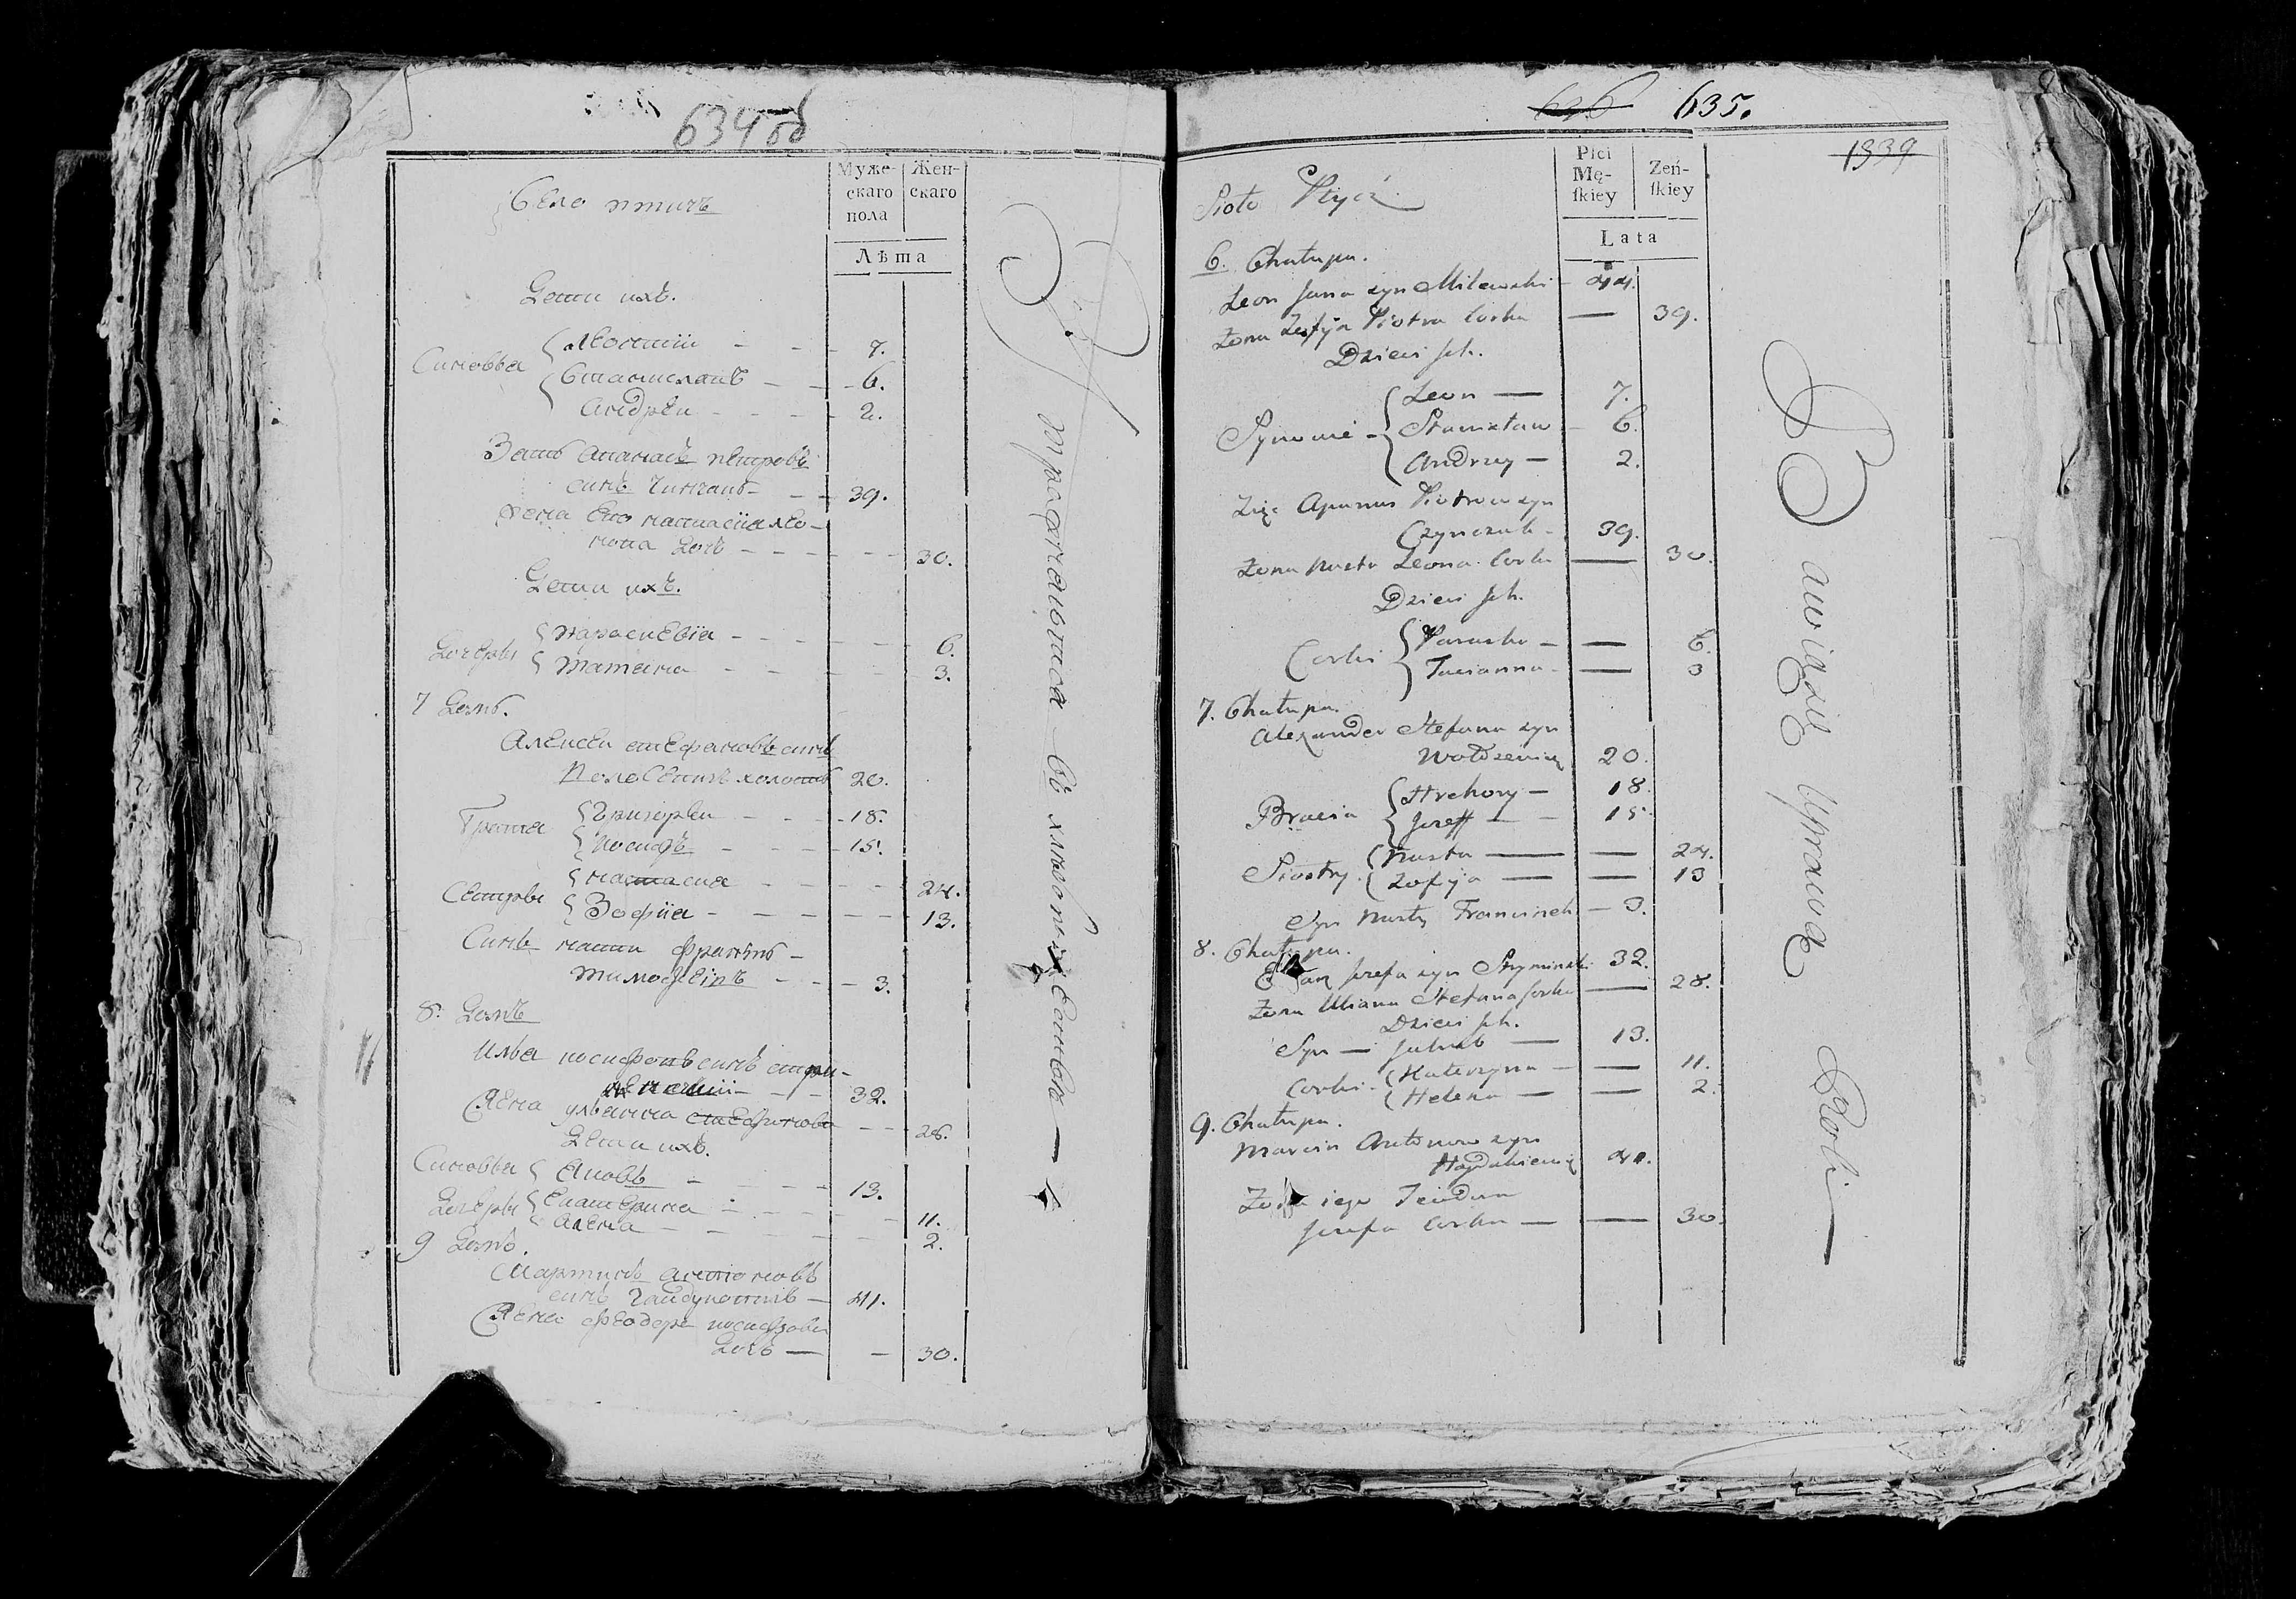 634 об
Село птичъ
Муже-
скаго
пола
Жен-
скаго
Лѣта
Дети ихъ.
Синовья
Леонтий - - - 7.
Станиславъ - - - 6.
Андрей - - - 2.
Зять Апанасъ петровъ
синъ Чинчакъ - - - 39.
Жена Его настасия лео-
нова дочь - - - 30.
Дети ихъ.
Дочеры
Параскевия - - - 6.
Татиана - - - 3.
7 Домъ.
Алексей стефановъ синъ
холостъ 20.
Братья
Григорей - - - 18.
Иосифъ - - - 15.
Сестры
настасия - - - 24.
Зофия - - - 13.
Синъ насти
- - - 3.
8. Домъ
Илья иосифовъ синъ стри-
- - - 32.
Жена ульянна стефанова - - 28.
Дети ихъ.
Синовья Яковъ - - - 13.
Дочеры Екатерина - - - 11.
Алена - - - 2.
9 Домъ.
Мартинъ антоновъ
синъ - 41.
Жена феодора иосифова
дочь — - 30.
635.
1339
Sioło Ptycz
Płci
Mę-
ſkiey
Żeń-
ſkiey
Lata
6. Chałupa.
Leon Jana syn Milewski - 44.
Żona Zofija Piotra Corka — 39.
Dzieci Jch.
Synowie -
Leon — 7.
Stanisław - 6.
Andrzey — 2.
Zięć Apanas Piotrow syn
Czynczak - 39.
Żona Nasta Leona Corka — 30.
Dzieci Jch.
Corki
Paraska — — 6.
Tacianna - — 3
7. Chałupa.
Alexander Stefana syn
20.
Bracia
Hrehory — 18.
Jozeff — - 15.
Siostry.
Nasta — — 24.
Zofija — — 13
Syn Nasty Franciszek — 3.
8. Chałupa.
Jozefa syn 32.
Żona Uliana Stefana Corka — 28.
Dzieci Jch.
Syn — Jakub — 13.
Corki -
Kateryna — — 11.
Helena — — 2.
9. Chałupa.
Marcin Antonow syn
Haydukiewicz 41.
Żona iego Teodora
Jozefa Corka — — 30.
Bawiączie uprawą Roli —